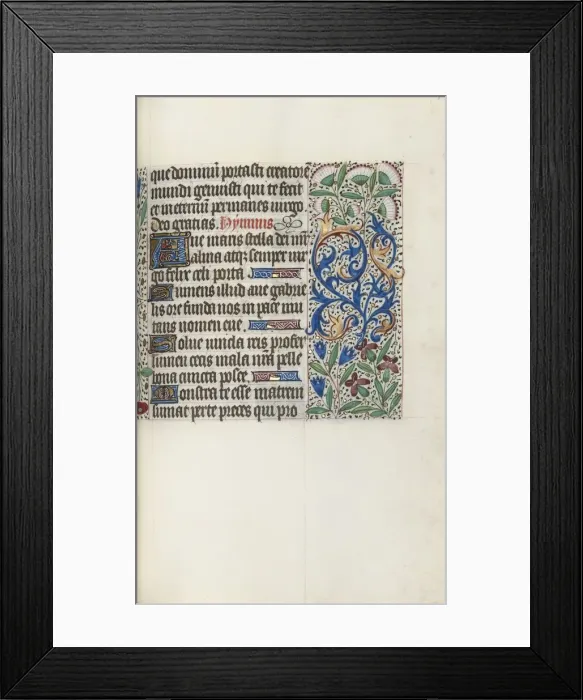 que dominū portasti creatorē
mundi genuisti qui te fecit
et in eternū permanes virgo.
Deo gratias. Hymnus.
Aue maris stella dei mr̄
alma atqꝫ semper vir
go felix celi porta
Sumens illud aue gabrie
lis ore funda nos in pace mu
tans nomen eue.
Solue vincla reis profer
lumen cecis mala nr̄a pelle
bona cuncta posce.
Monstra te esse matrem
sumat per te preces qui pro